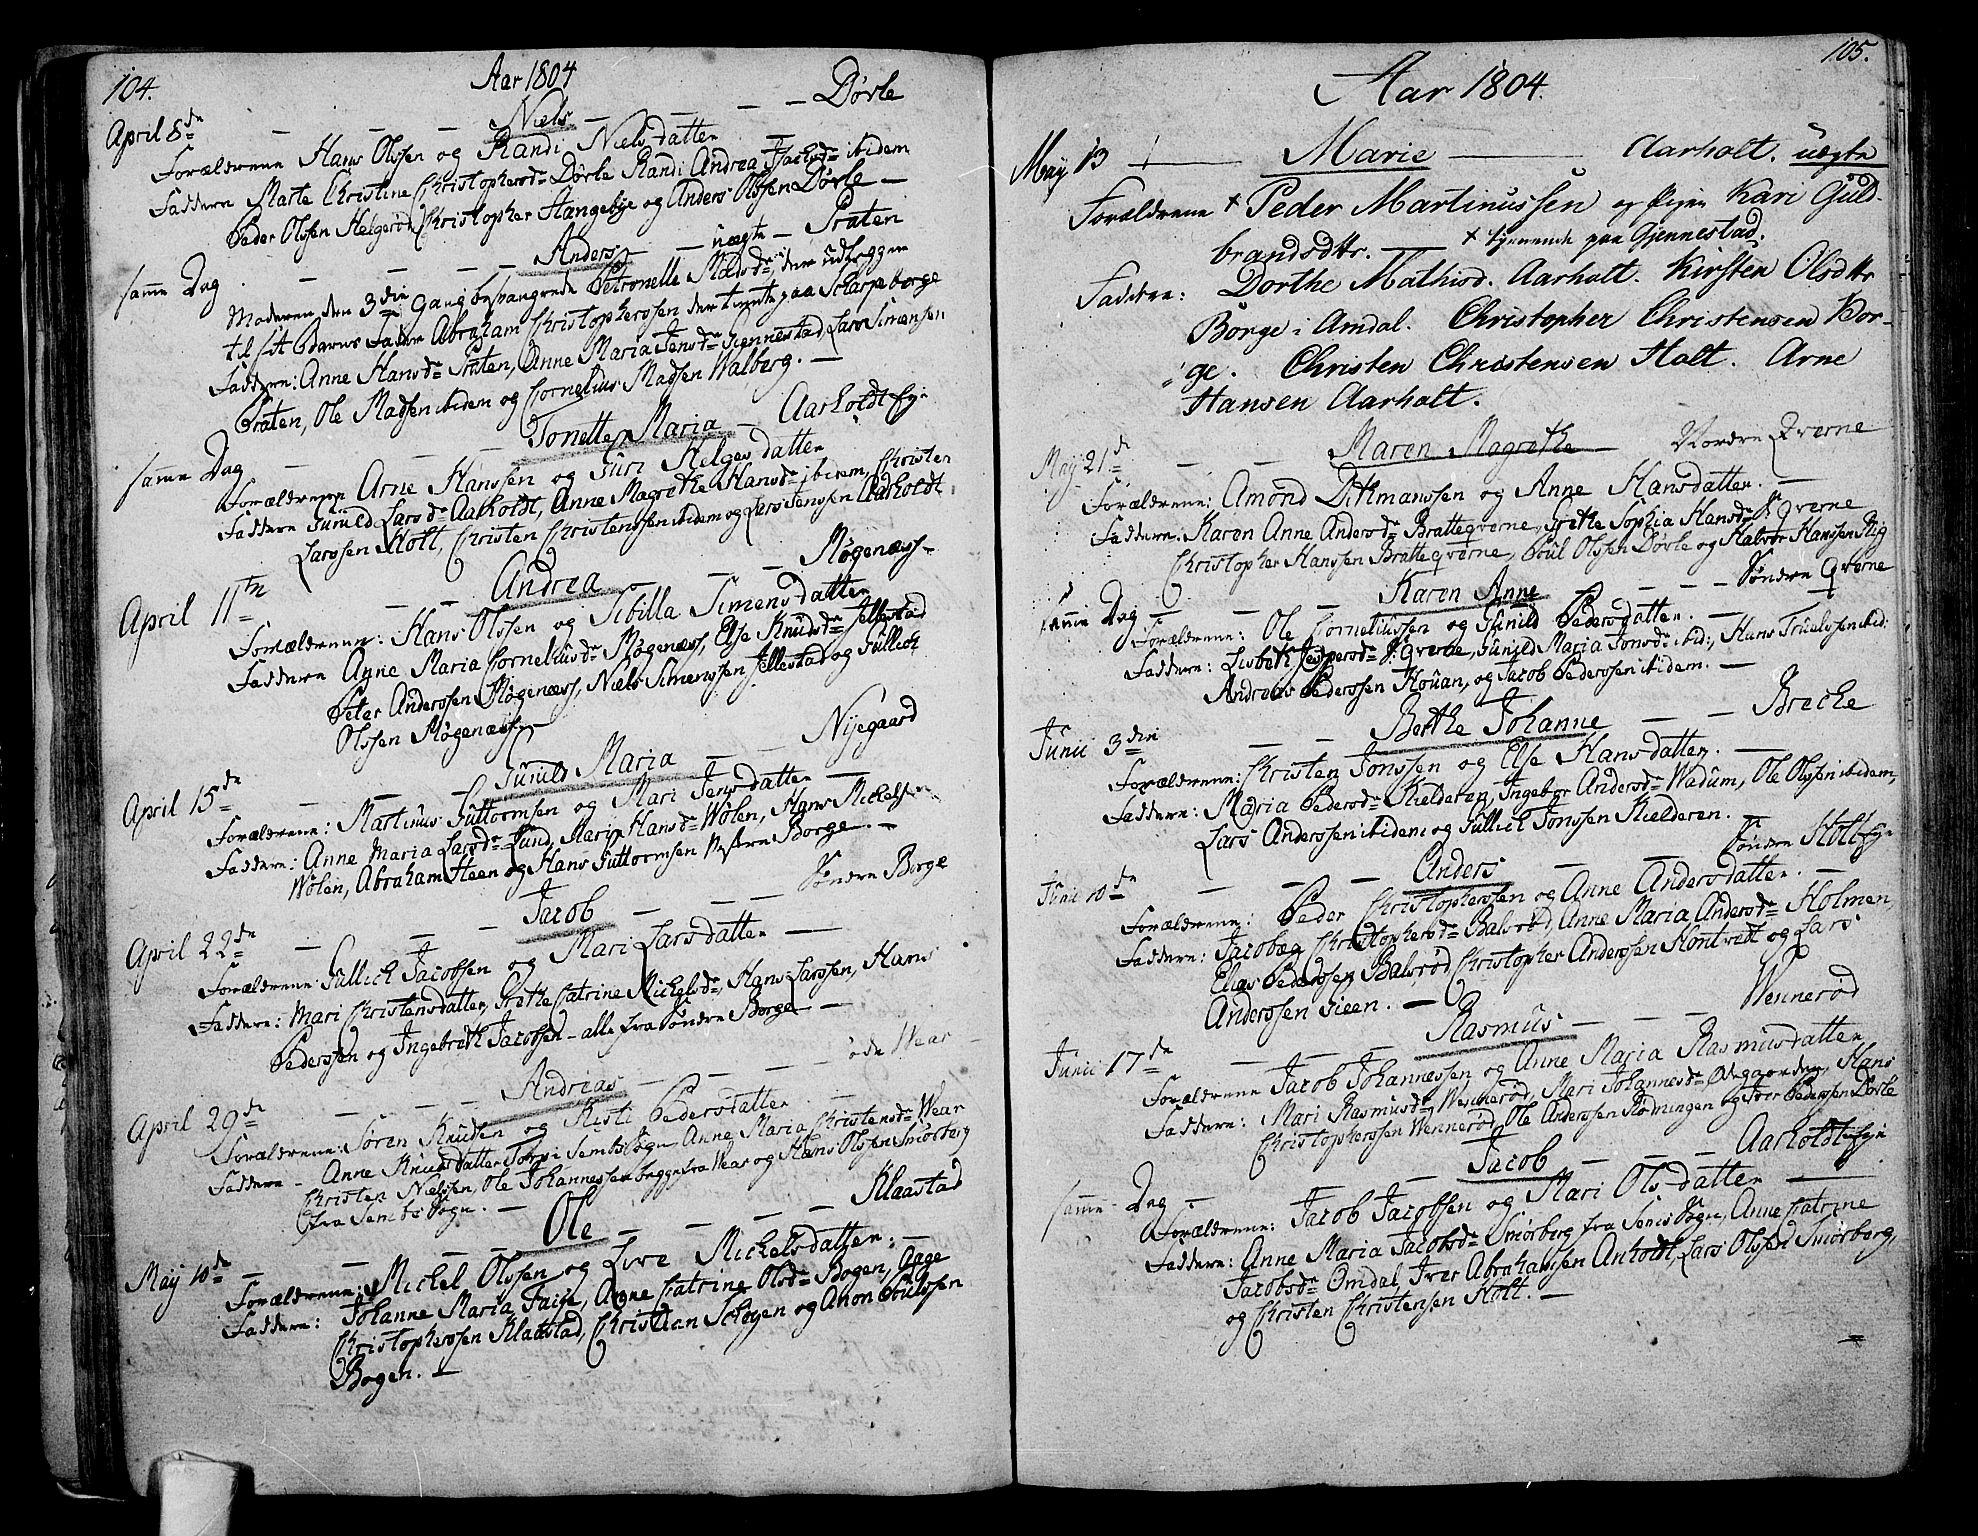 104.
Aar 1804
April 8de — — — Niels — — — Dørle
Forældrene Hans Olssen og Randi Nielsdatter
Faddern Marte Christine Christophersdr Dørle Randi Andrea Jachsdr ibidem
Peder Olssen Helgerød, Christopher Hangebye og Anders Olssen Dørle —
samme Dag — — — Anders — uægte — Præten
Moderen, den 3die Gang besvangrede Petronelle Madsdr, der udlegger
til sit Barns Fader Abraham Christopherssen der tiente paa Scharpeborge
Faddern: Anne Hansdr Præten, Anne Maria Jensdr Giennestad, Lars Simensen
Præten, Ole Madsen ibidem og Cornelius Madsen Walberg. —
samme Dag — — — Tonette Maria — Aarholdt Eye
Forældrene Arne Hanssen og Guri Helgesdatter
Faddern Gunild Larsdr Aarholdt, Anne Magrethe Hansdr ibidem, Christen
Larssen Holt, Christen Christenssen ibidem og Lars Jenssen Aarholdt
April 11te — — Andrea — — — Møgenæss —
Forældrene: Hans Olssen og Sibilla Simensdatter
Faddern Anne Maria Corneliusdr Møgenæss, Else Knudsdr Jellestad
Peter Anderssen Møgenæss, Niels Simenssen Jellestad og Gullich
Olssen Møgenæss —
April 15de — — — Gunild Maria — — Nijegaard
Forældrene: Martinus Guttormsen og Mari Jensdatter —
Faddern: Anne Maria Larsdr Lund, Mari Hansdr Wølen, Hans Mickelsen
Wølen, Abraham Heen og Hans Guttormsen Vestre Borge. —
April 22de — — — Jacob — — — Søndre Borge
Forældrene Gullich Jacobsen og Mari Larsdatter —
Faddern: Mari Christensdatter, Grethe Catrine Mickelsdr, Hans Larssen, Hans
Pederssen og Ingebreth Jacobsen — alle fra Søndre Borge —
April 29de — — — Andreas — — — øde Wear
Forældrene: Søren Knudsen og Kisti Pedersdatter. —
Faddern — Anne Knudsdatter Torp i Sembs Sogn Anne Maria Christensdr Wear
Christen Nielssen, Ole Johannessen begge fra Wear og Hans Olssen Smørberg
fra Sembs Sogn. —
May 10de — — Ole — — — Klaastad
Forældrene: Mickel Olssen og Live Mickelsdatter: —
Faddern: Johanne Maria Faige, Anne Catrine Olsdr Bogen, Aage
Christopherssen Klaastad, Christian Schogen og Anon Poulssen
Bogen. —
105.
Aar 1804.
May 13 — Marie — Aarholt. uægte
Forældrene + Peder Martinussen og Pigen Kari Guld-
brandsdttr. — + tjenende paa Gjennestad.
Faddere: Dorthe Mathisd. Aarholt. Kirsten Olsdttr
Borge i Amdal. Christopher Christensen Bor-
ge. Christen Christensen Holt. Arne
Hansen Aarholt.
May 21de — — Maren Magrethe — Nordre Qverne
Forældrene: Amond Dithmanssen og Anne Hansdatter. —
Faddern: Karen Anne Andersdr Bratteqverne, Grethe Sophia Hansdr S: Qverne
Christopher Hanssen Bratteqverne, Poul Olssen Dørle og Halvor Hanssen Rig
samme Dag — — — Karen Anne — — — Søndre Qverne
Forældrene: Ole Corneliussen og Gunild Pedersdatter. —
Faddern: Lisbeth Jespersdr S: Qverne, Gunild Maria Jonsdr ibid:, Hans Truelssen ibid:
Andreas Pederssen Houan, og Jacob Pederssen ibidem. —
Junii 3die — — Berthe Johanne — — Breche
Forældrene: Christen Jonssen og Else Hansdatter. —
Faddern: Maria Pedersdr Kielderen, Ingebor Andersdr Wadum, Ole Olssen ibidem,
Lars Anderssen ibidem og Gullich Jonssen Kielderen.
Junii 10de — — — Anders — — Søndre Holt Eye
Forældrene: Peder Christopherssen og Anne Andersdatter. —
Faddern: Jacobæa Christophersdr Balsrød, Anne Maria Andersdr Holmen,
Elias Pederssen Balsrød, Christopher Anderssen Hontvedt og Lars
Anderssen Gieen. —
Junii 17de — — — Rasmus — — — Wennerød
Forældrene Jacob Johannessen og Anne Maria Rasmusdatter
Faddern: Mari Rasmusdr Wennerød, Mari Johannesdr Ødegaarden, Hans
Christopherssen Wennerød, Ole Anderssen Rødningen og Iver Pederssen Dørle
samme Dag — — — Jacob — — — Aarholdt Eye
Forældrene: Jacob Jacobssen og Mari Olsdatter —
Faddern: Anne Maria Jacobsdr Smørberg fra Sems Sogn, Anne Catrine
Jacobsdr Omdal, Iver Abrahamssen Anholdt, Lars Olssen Smørberg,
og Christen Christensen Holt. —